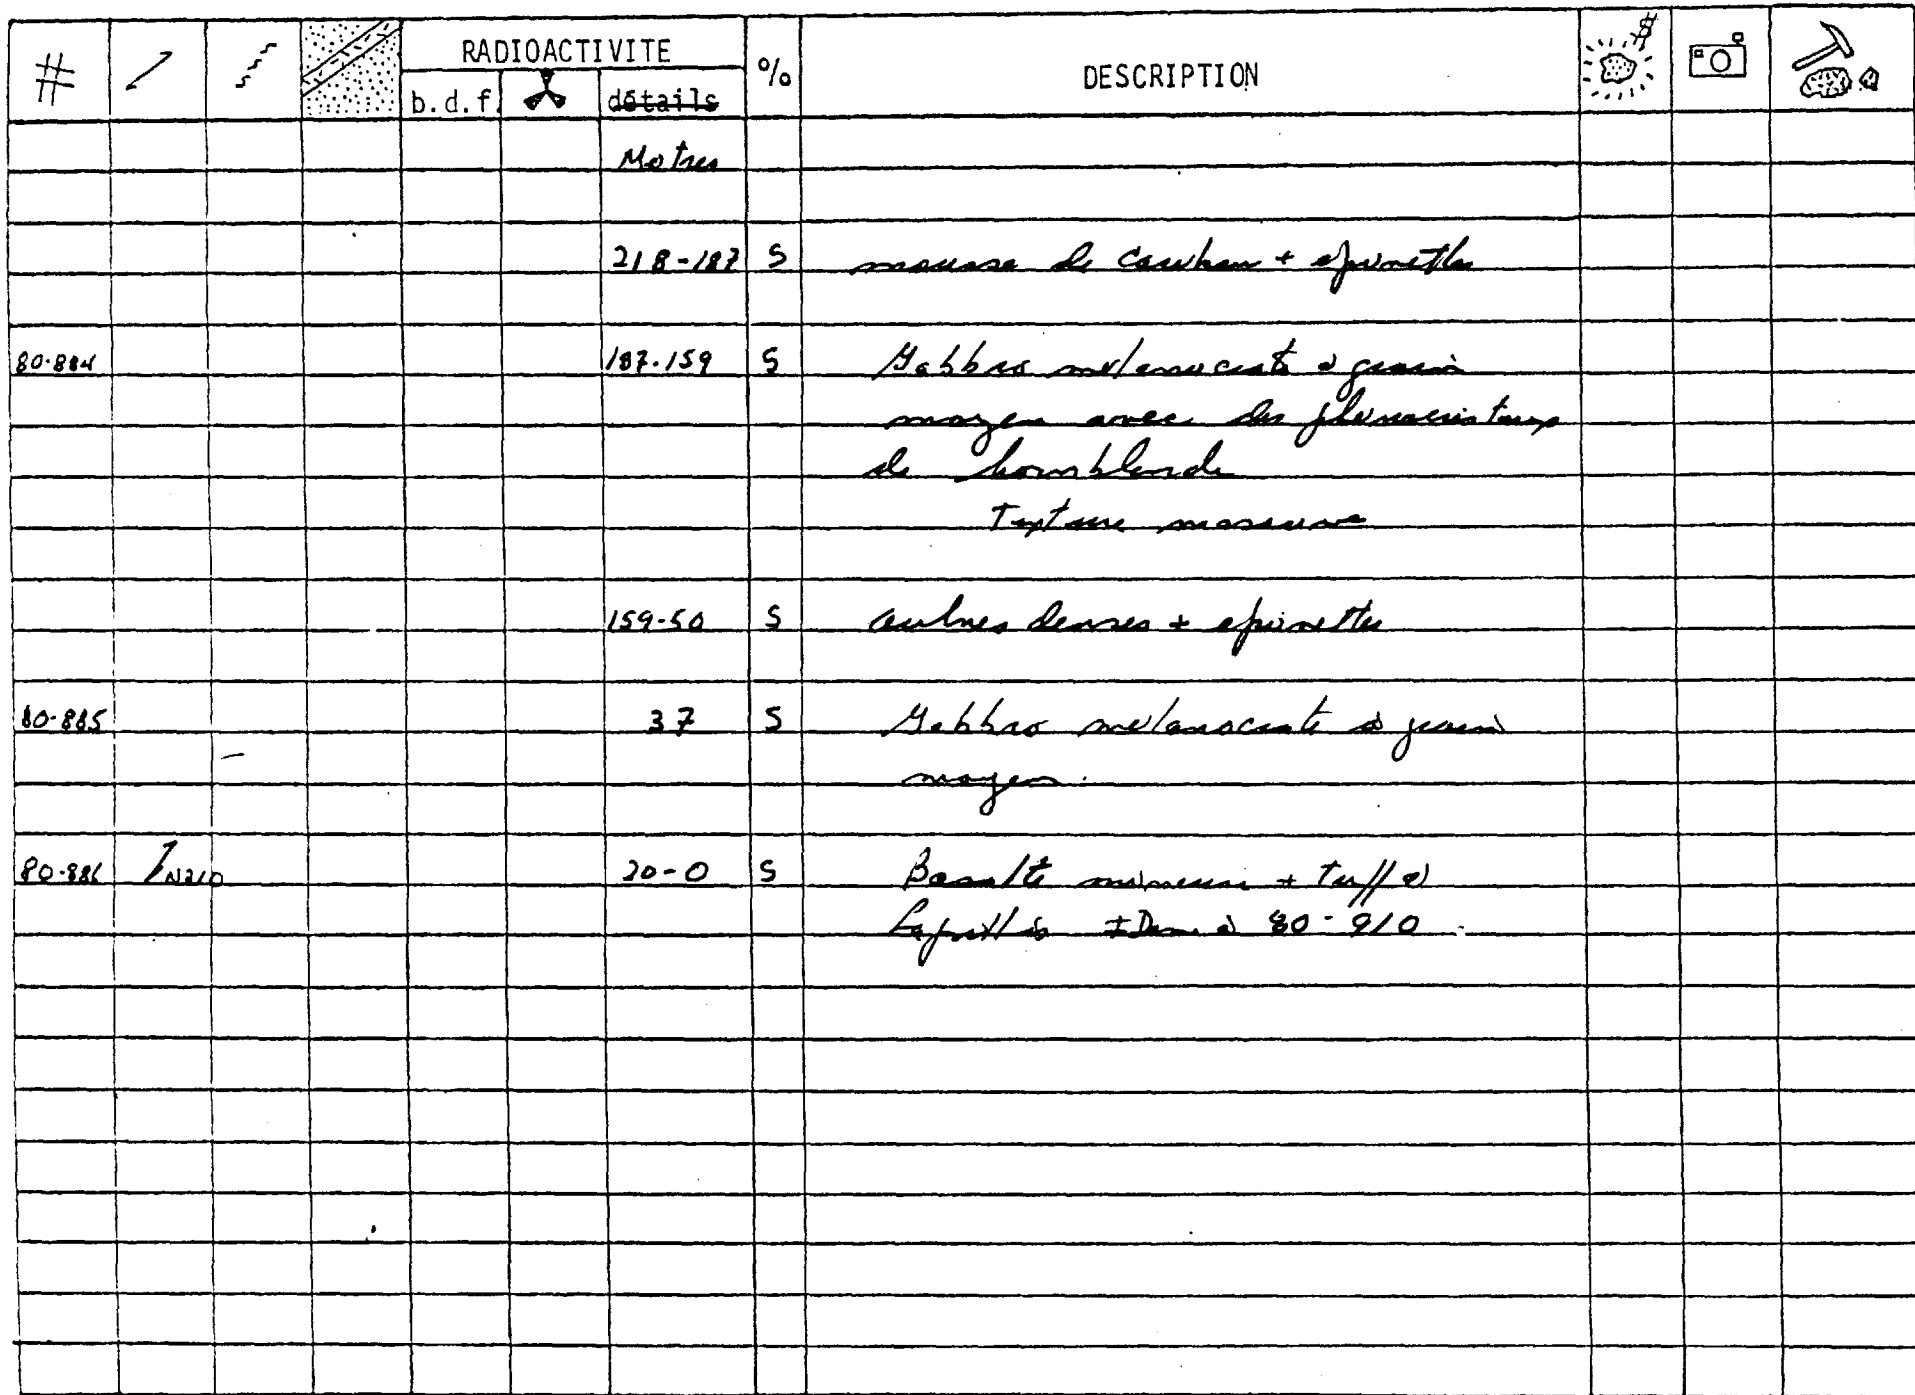 # RADIOACTIVITE % DESCRIPTION
b.d.f. détails
Metres
218-187 S mousse de caribou + epinettes
80-884 187-159 S Gabbro melanocrate à grain
moyen avec des phenocristaux
de hornblende
Texture massive
159-50 S aulnes denses + epinettes
80-885 37 S Gabbro melanocrate à grain
moyen.
80-886 N210 20-0 S Basalte + tuff à
Lapillis Idem à 80-910